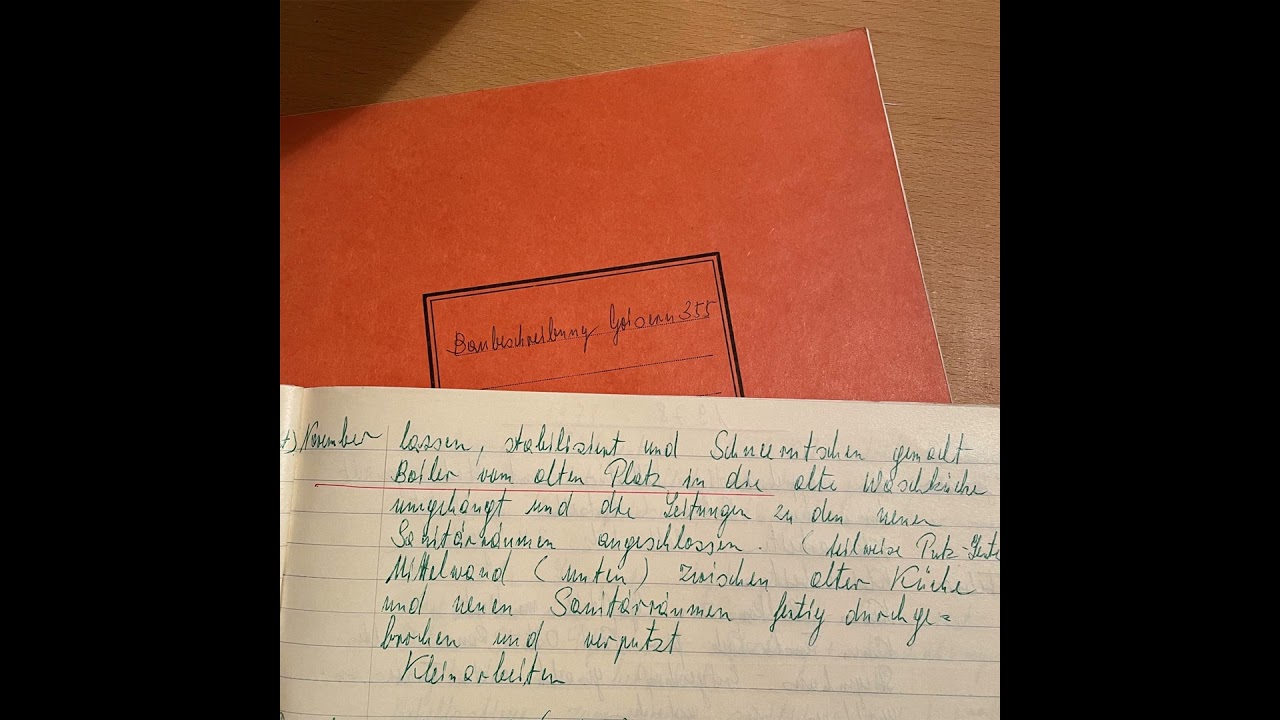 Baubeschreibung Goisern 355
November lassen, stabilisiert und gemacht
Boiler vom alten Platz in die alte Waschküche
umgehängt und die Leitungen zu den neuen
Sanitärräumen angeschlossen. (teilweise Putz-
Mittelwand (unten) zwischen alter Küche
und neuen Sanitärräumen fertig durchge=
brochen und verputzt
Kleinarbeiten